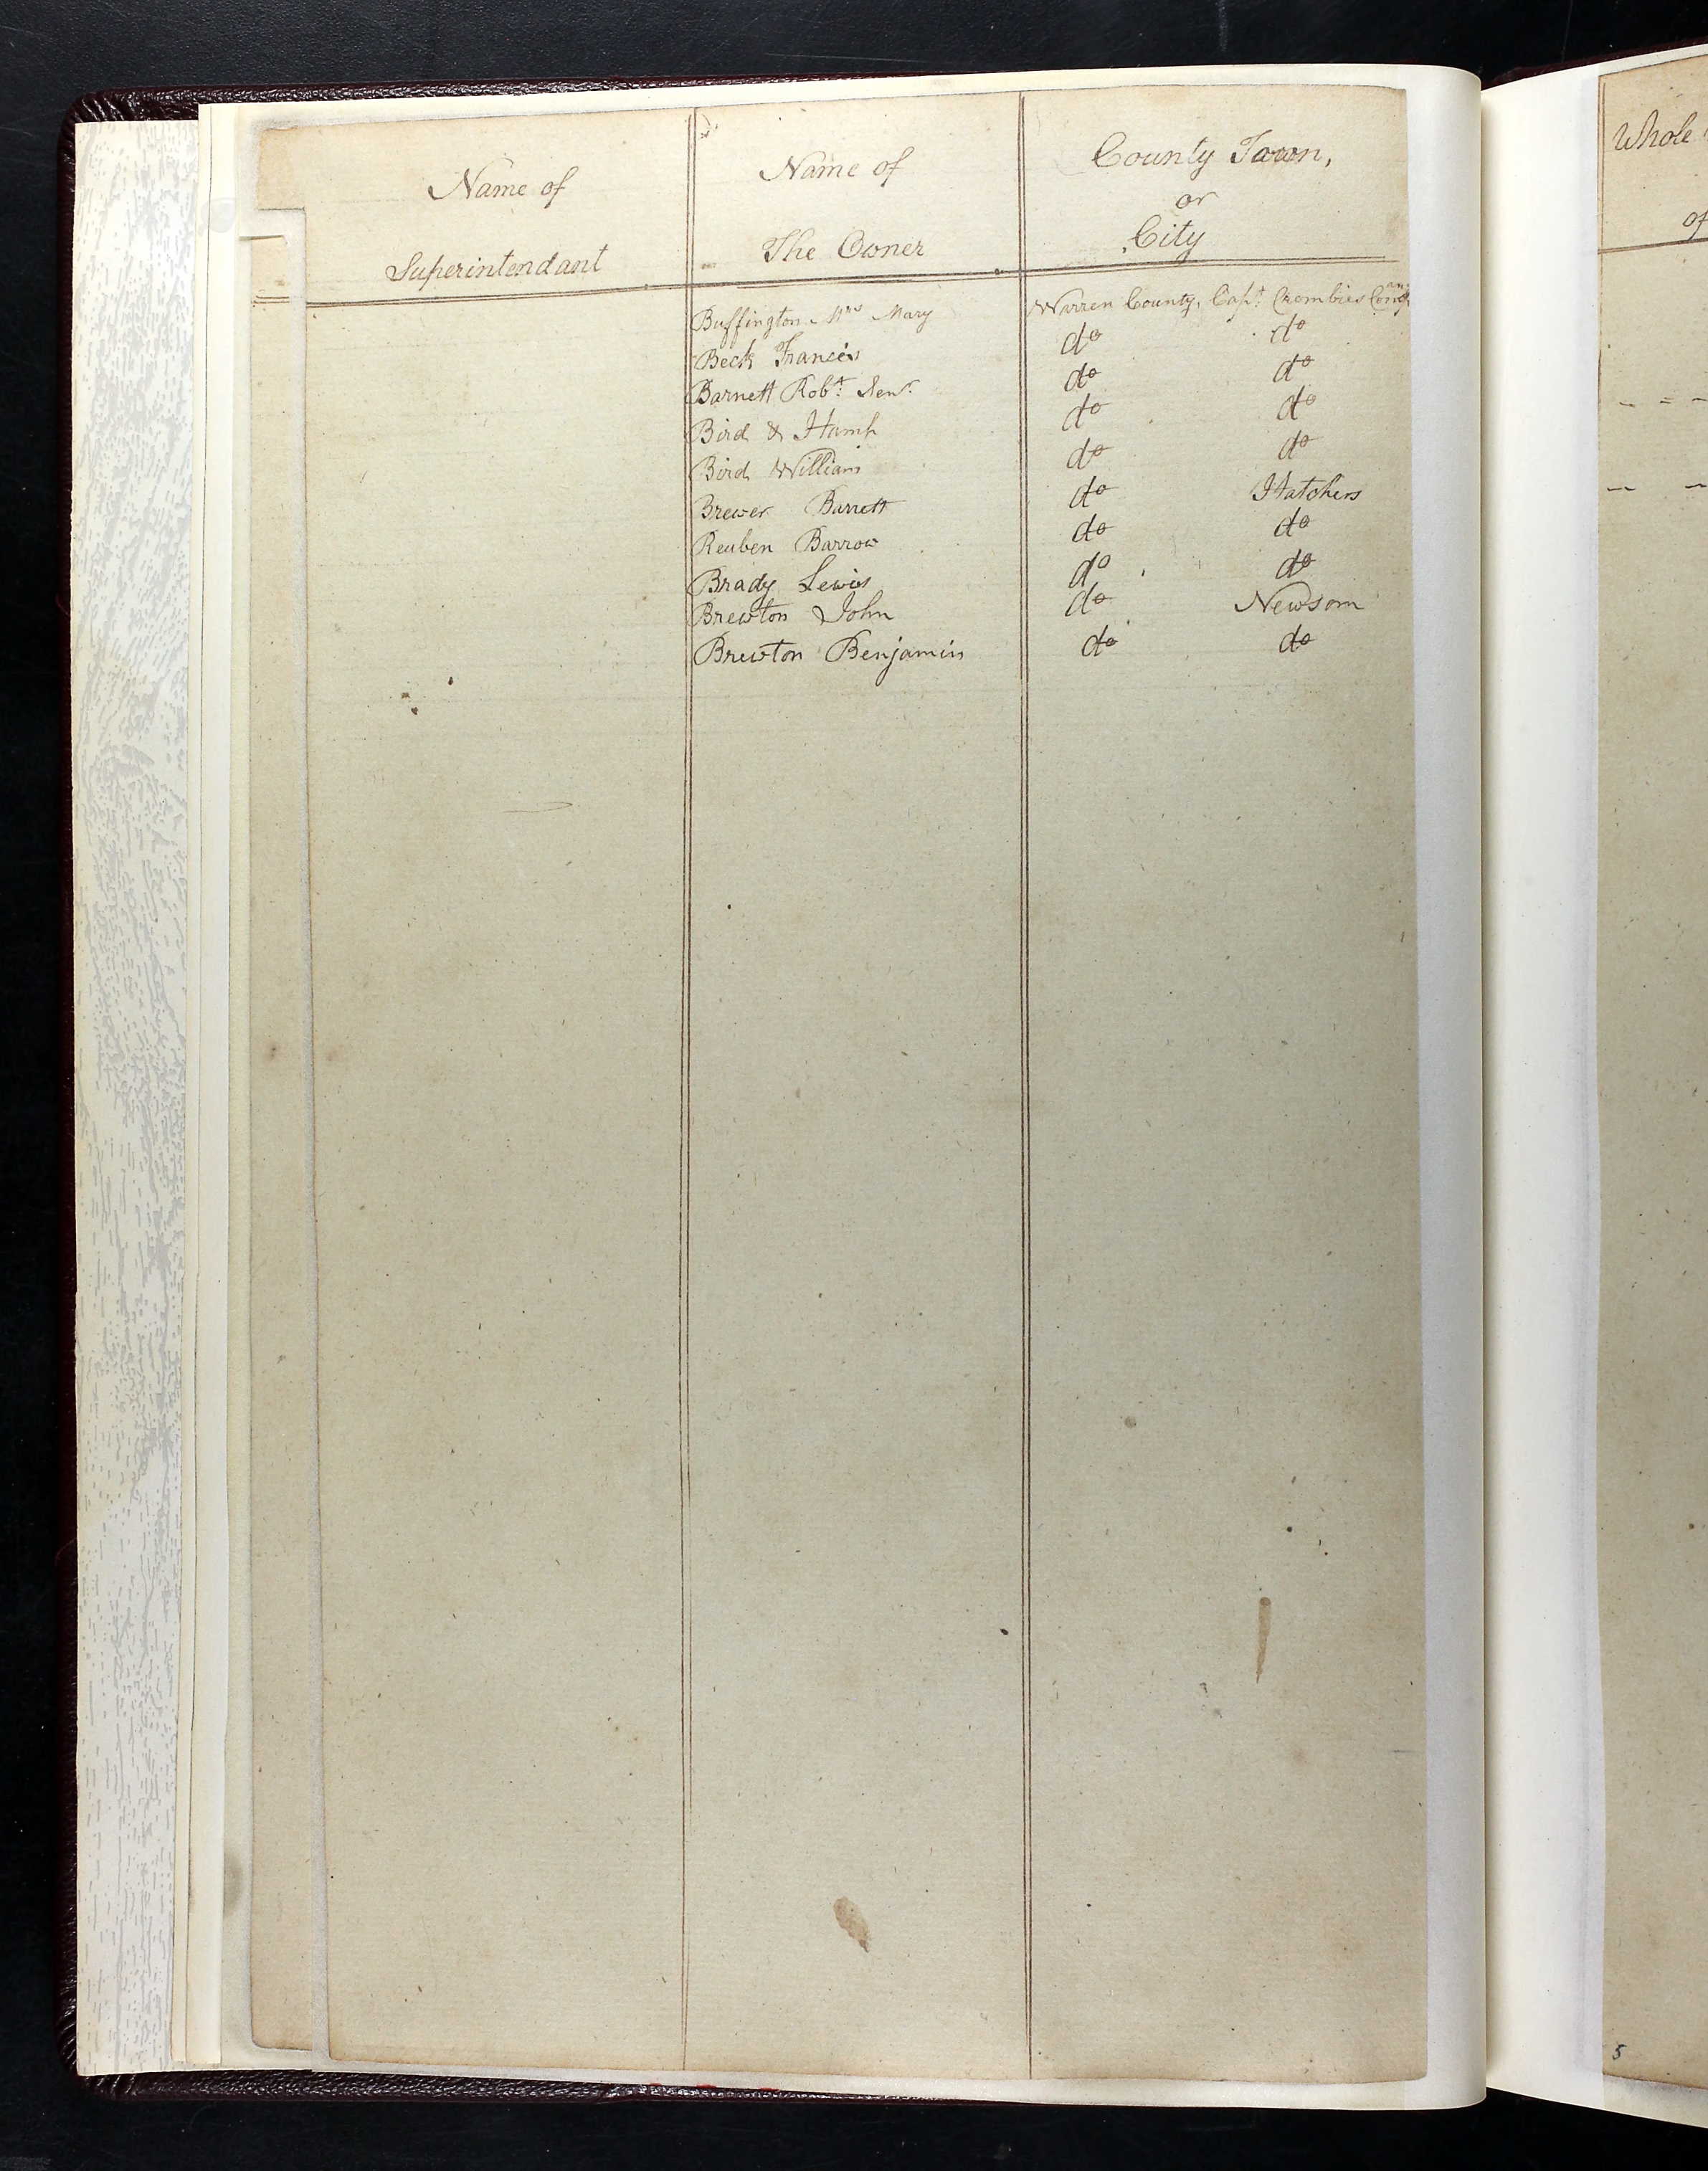 Name of
Superintendant
Name of
The Owner
County Town,
or
City
Buffington Mrs Mary Warren County, Capt. Crombies Company
Beck Francis do do
Barnett Robt. Senr. do do
Bird & Hamp do do
Bird William do do
Brewer Barrett do Hatchers
Reuben Barrow do do
Brady Lewis do do
Brewton John do Newsom
Brewton Benjamin do do
Whole
of
5